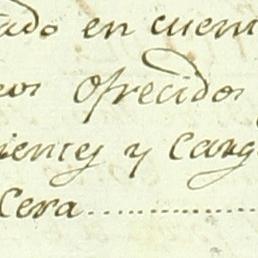 ado en cuent
eos Ofrecidos
ientes y Carg
Cera